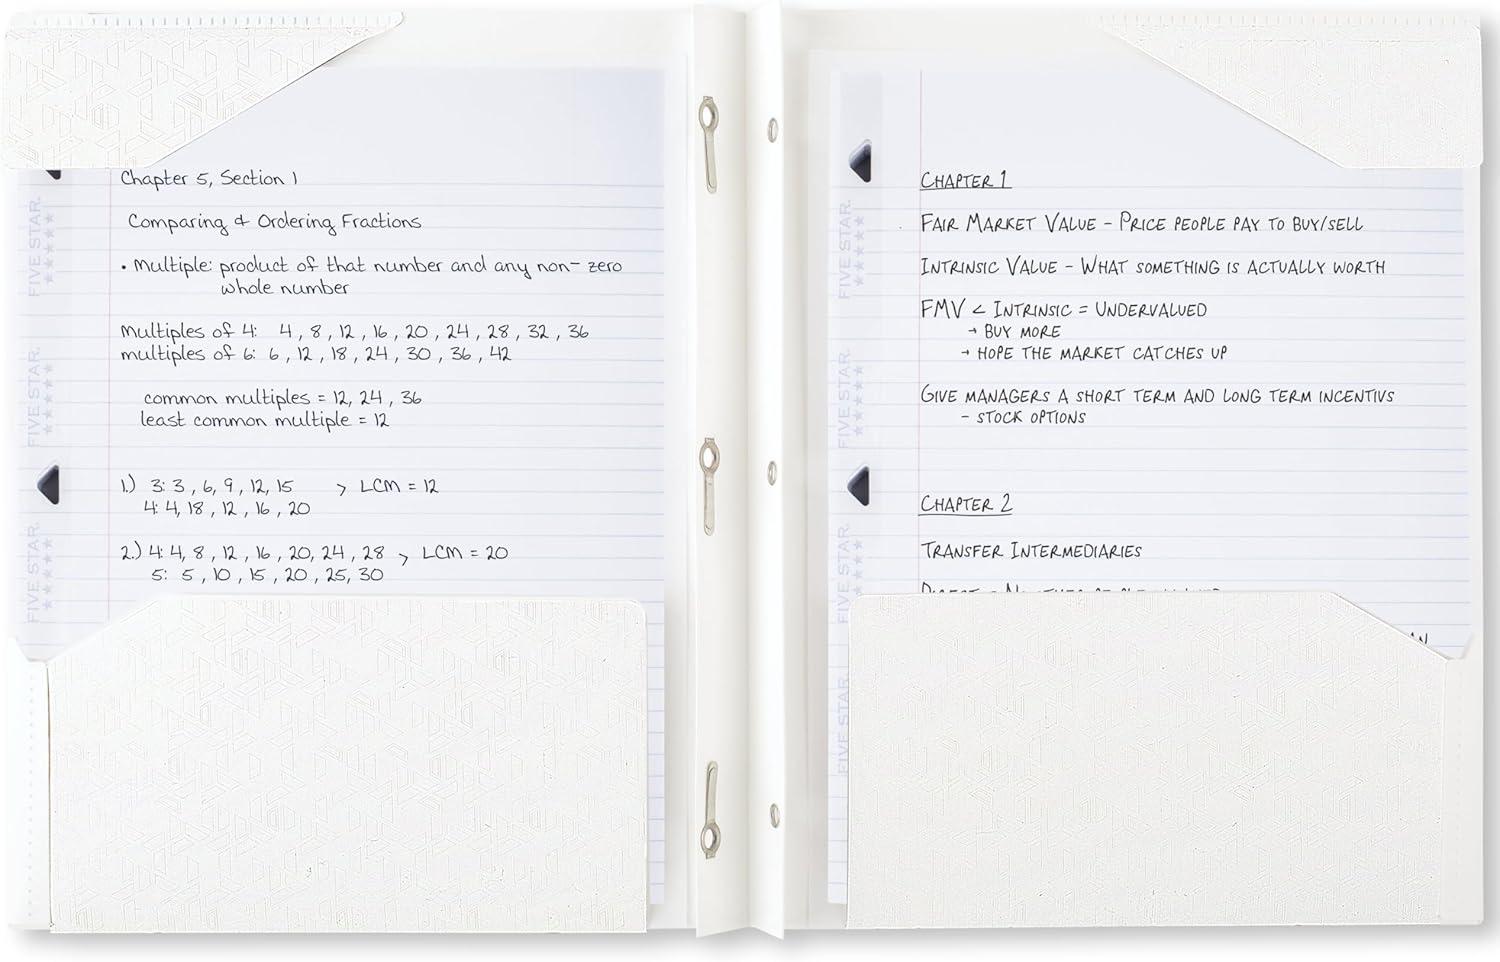 Chapter 5, Section 1
Comparing & Ordering Fractions
• Multiple: product of that number and any non-zero
whole number
multiples of 4: 4, 8, 12, 16, 20, 24, 28, 32, 36
multiples of 6: 6, 12, 18, 24, 30, 36, 42
common multiples = 12, 24, 36
least common multiple = 12
1.) 3: 3, 6, 9, 12, 15 > LCM = 12
4: 4, 18, 12, 16, 20
2.) 4: 4, 8, 12, 16, 20, 24, 28 > LCM = 20
5: 5, 10, 15, 20, 25, 30
FIVE STAR.
FIVE STAR.
FIVE STAR.
CHAPTER 1
FAIR MARKET VALUE - PRICE PEOPLE PAY TO BUY/SELL
INTRINSIC VALUE - WHAT SOMETHING IS ACTUALLY WORTH
FMV < INTRINSIC = UNDERVALUED
→ BUY MORE
→ HOPE THE MARKET CATCHES UP
GIVE MANAGERS A SHORT TERM AND LONG TERM INCENTIVS
- STOCK OPTIONS
CHAPTER 2
TRANSFER INTERMEDIARIES
FIVE STAR.
FIVE STAR.
FIVE STAR.
FIVE STAR.